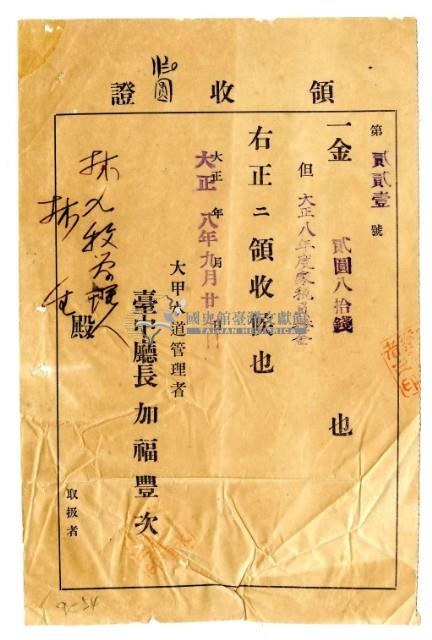 領收證
第貳貳壹號
一金 貳圓八拾錢 也
但 大正八年度家税
右正ニ領收候也
大正 年 月 日
大正 八年九月廿
大甲 道管理者
臺中廳長 加福豐次
林九牧管理人
林 殿
取扱者
國史館臺灣文獻館
TAIWAN HISTORICA